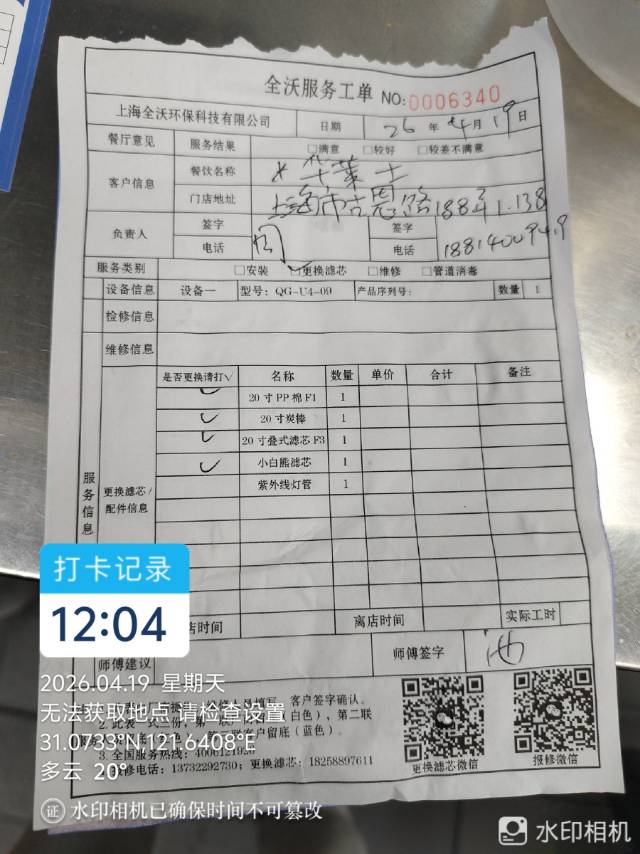 全沃服务工单 NO:0006340
上海全沃环保科技有限公司 日期 26年4月19日
餐厅意见 服务结果 □满意 □较好 □较差不满意
客户信息 餐饮名称 华莱士
门店地址 上海市古恩路188弄1.138
负责人 签字 签字
电话 电话
服务类别 □安装 □更换滤芯 □维修 □管道消毒
设备信息 设备一 型号: QG-U4-09 产品序列号: 数量 1
检修信息
维修信息
服务信息 更换滤芯/配件信息
是否更换请打√ 名称 数量 单价 合计 备注
✓ 20寸PP棉F1 1
✓ 20寸炭棒 1
✓ 20寸叠式滤芯F3 1
✓ 小白熊滤芯 1
紫外线灯管 1
店时间 离店时间 实际工时
师傅建议 师傅签字
客户签字确认。
(白色), 第二联
客户留底(蓝色)。
3. 全国服务热线:
电话: 13732292730; 更换滤芯: 18258897611
更换滤芯微信 报修微信
打卡记录
12:04
2026.04.19 星期天
无法获取地点请检查设置
31.0733°N,121.6408°E
多云 20°
证 水印相机已确保时间不可篡改
水印相机